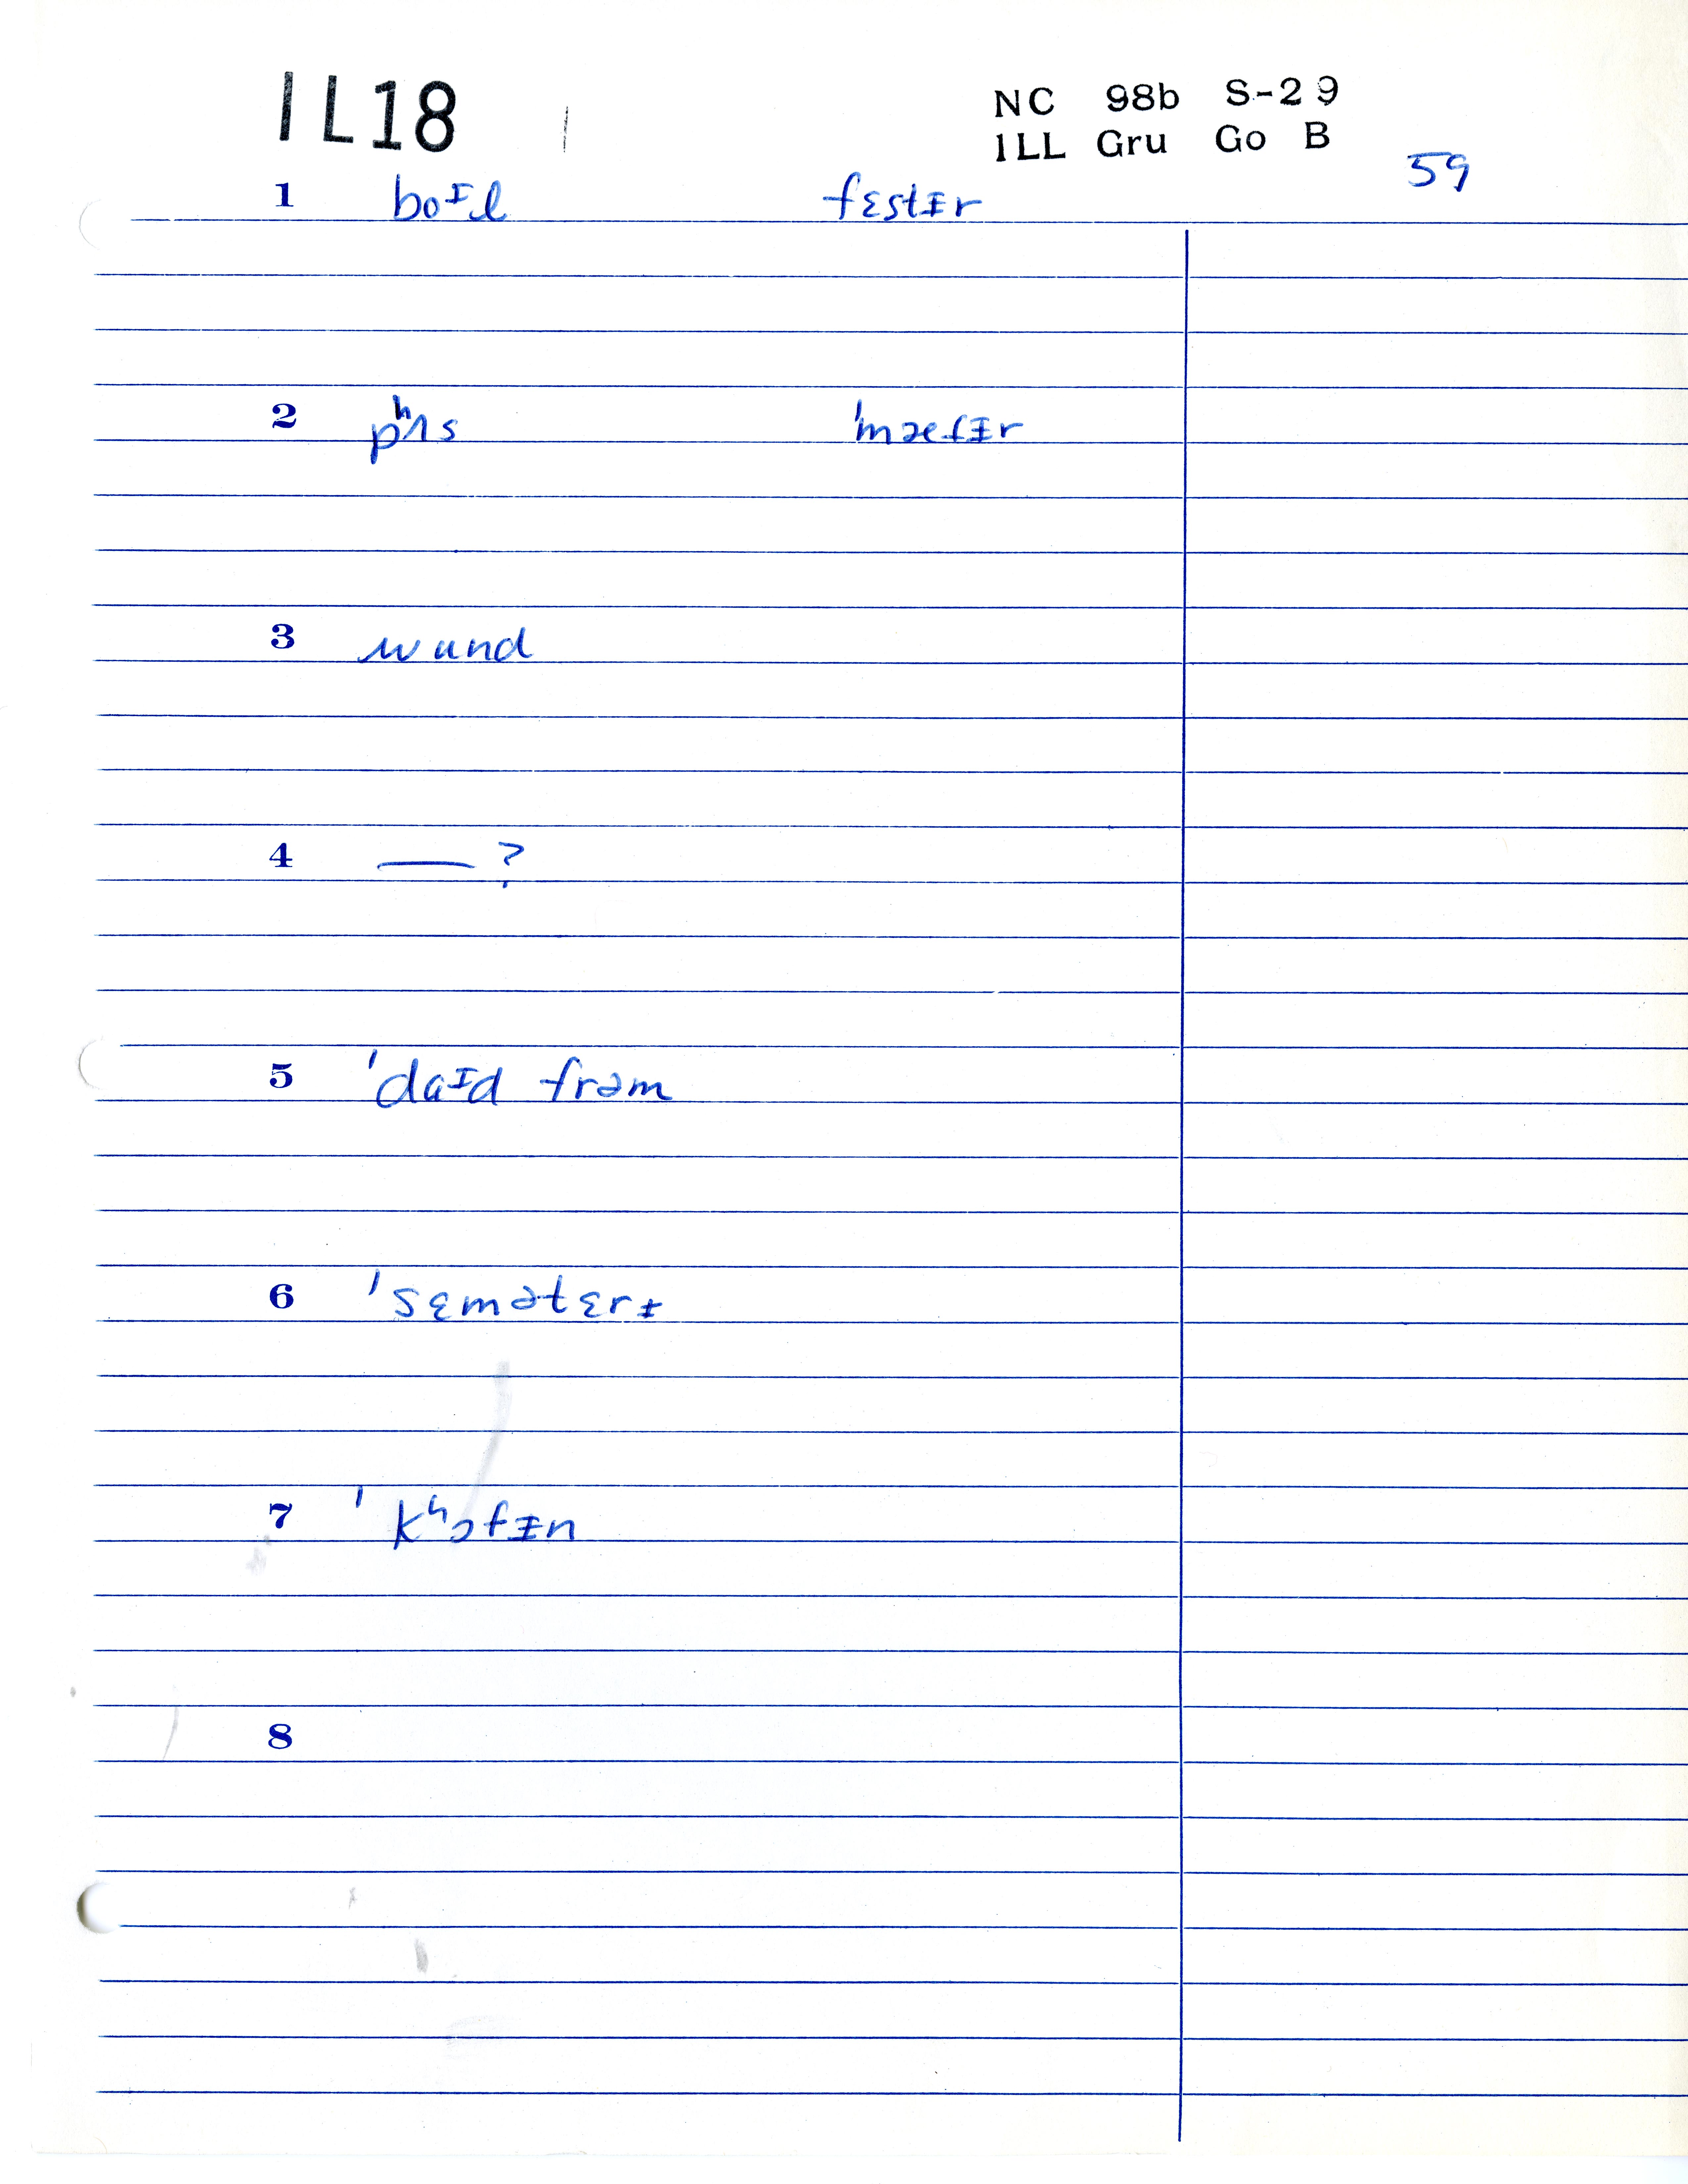 IL18
NC 98b S-29
ILL Gru Go B
59
1 boɪl fɛstɪr
2 pʰʌs
3 wund
4 — ?
5 'daɪd frəm
6 'sɛmətɛrɪ
7 'kʰɔfɪn
8